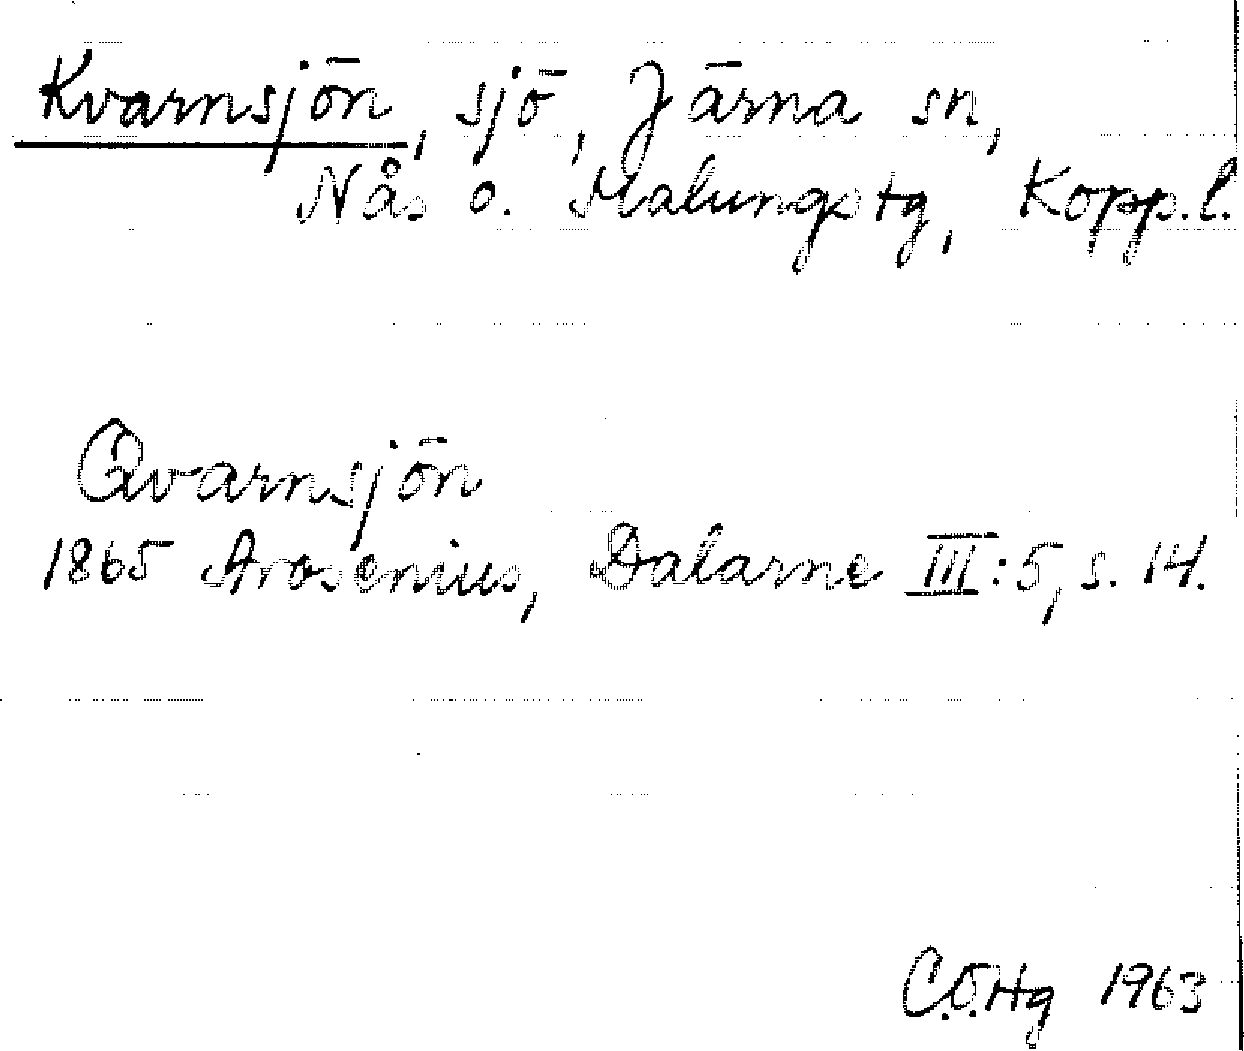 Kvarnsjön, sjö, Järna sn,
Nås o. Malungs tg, Kopp. l.
Qvarnsjön
1865 Arosenius, Dalarne III:5, s. 14.
C.Ö.Hg 1963